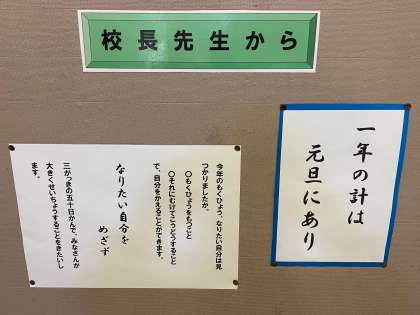 校長先生から
一年の計は
元旦にあり
今年のもくひょう、なりたい自分は見
つかりましたか。
〇もくひょうをもつこと
〇それにむけてこうどうすること
で、自分をかえることができます。
なりたい自分を
めざす
三がっきの五十日かんで、みなさんが
大きくせいちょうすることをきたいし
ます。